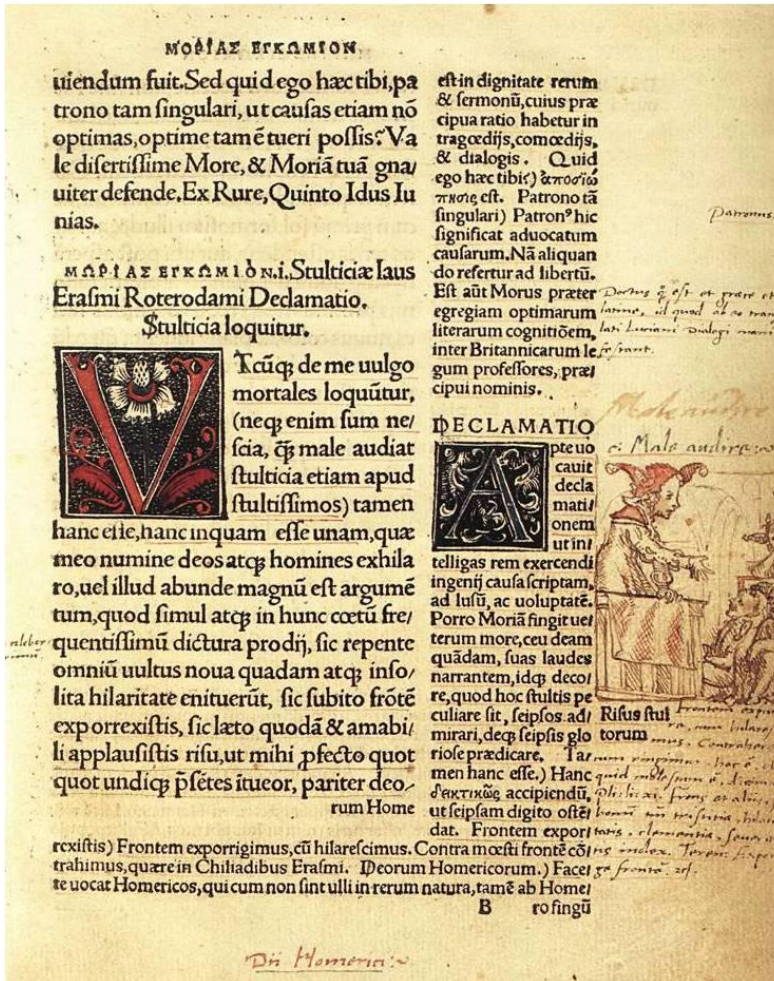 ΜΟΡΙΑΣ ΕΓΚΩΜΙΟΝ
uiendum fuit. Sed quid ego hæc tibi, pa
trono tam singulari, ut causas etiam nõ
optimas, optime tamẽ tueri possis? Va
le disertissime More, & Moriã tuã gna/
uiter defende. Ex Rure, Quinto Idus Iu
nias.
ΜΩΡΙΑΣ ΕΓΚΩΜΙΟΝ.i. Stulticiæ laus
Erasmi Roterodami Declamatio.
Stulticia loquitur.
VTcũq; de me uulgo
mortales loquũtur,
(neq; enim sum ne/
scia, q̃; male audiat
stulticia etiam apud
stultissimos) tamen
hanc esse, hanc inquam esse unam, quæ
meo numine deos atq; homines exhila
ro, uel illud abunde magnũ est argumẽ
tum, quod simul atq; in hunc cœtũ fre/
quentissimũ dictura prodij, sic repente
omniũ uultus noua quadam atq; inso/
lita hilaritate enituerũt, sic subito frõtẽ
exporrexistis, sic læto quodã & amabi/
li applausistis risu, ut mihi ꝓfecto quot
quot undiq; p̃sẽtes ĩtueor, pariter deo/
rum Home
est in dignitate rerum
& sermonũ, cuius præ
cipua ratio habetur in
tragœdijs, comœdijs,
& dialogis. Quid
ego hæc tibi?) ἀποσιώ
πησις est. Patrono tã
singulari) Patronꝰ hic
significat aduocatum
causarum. Nã aliquan
do refertur ad libertũ.
Est aũt Morus præter
egregiam optimarum
literarum cognitiõem,
inter Britannicarum le
gum professores, præ/
cipui nominis.
DECLAMATIO
Apte uo
cauit
decla
mati/
onem
ut in/
telligas rem exercendi
ingenij causa scriptam,
ad lusũ, ac uoluptatẽ.
Porro Moriã fingit ue/
terum more, ceu deam
quãdam, suas laudes
narrantem, idq; deco/
re, quod hoc stultis pe
culiare sit, seipsos ad/
mirari, deq; seipsis glo
riose prædicare. Ta/
men hanc esse.) Hanc
δεικτικῶς accipiendũ,
ut seipsam digito ostẽ/
dat. Frontem expor/
rexistis) Frontem exporrigimus, cũ hilarescimus. Contra mœsti frontẽ cõ/
trahimus, quære in Chiliadibus Erasmi. Deorum Homericorum.) Face/
te uocat Homericos, qui cum non sint ulli in rerum natura, tamẽ ab Home/
B ro fingũ
Patronus.
Male audire
c: Male audire
Risus stul
torum
Dii Homerici:~